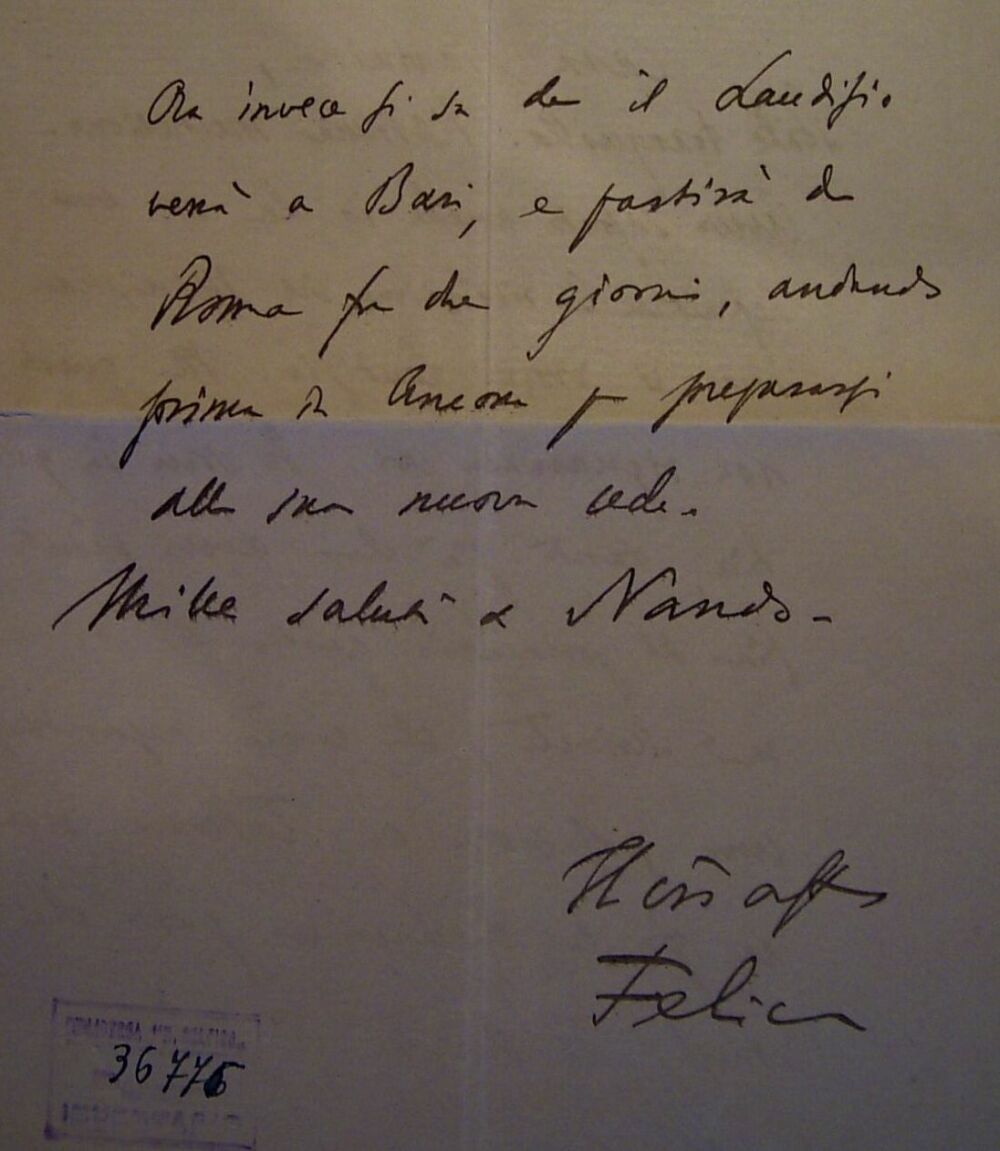 Ora invece si sa che il Landisio
verrà a Bari, e partirà da
Roma fra due giorni, andando
prima in Ancona p prepararsi
alla sua nuova sede.
Mille saluti a Nando -
aff
Felice
36775